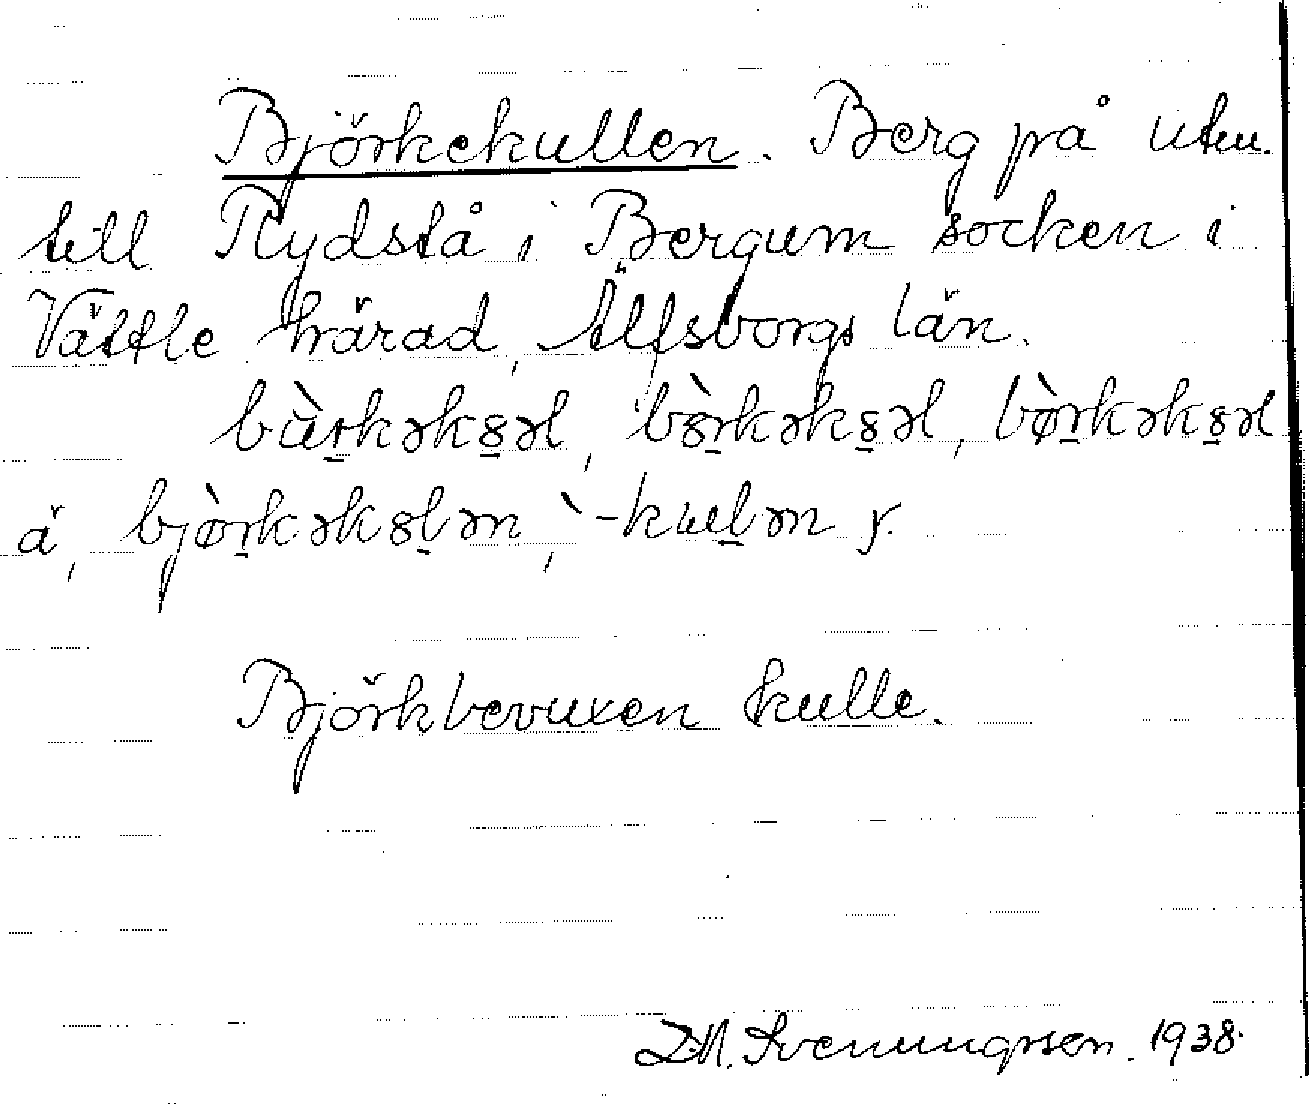 Björkekullen. Berg på utm.
till Rydstå i Bergum socken i
Vättle härad, Älfsborgs län.
bàr̠kəkȣ̠əl, bȣ̀r̠kəkȣ̠əl, bø̀r̠kəkȣ̠əl
ä, bjø̀r̠kəkȣl̠ən, `-kul̠ən y.
Björkbevuxen kulle.
Sveningsson. 1938.